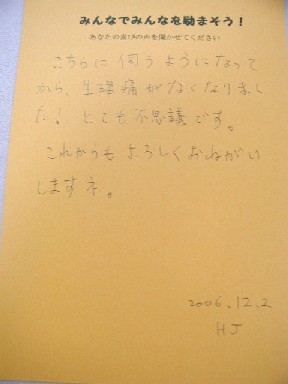 みんなでみんなを励まそう！
あなたの喜びの声を聞かせてください
こちらに伺うようになって
から、生理痛がなくなりまし
た！とても不思議です。
これからもよろしくおねがい
しますネ。
2006.12.2
HJ